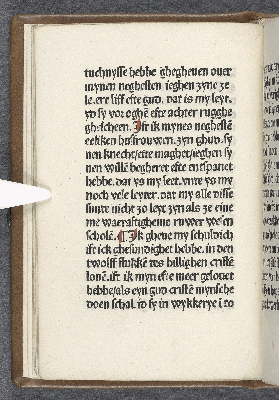 tuchnysse hebbe ghegheuen ouer
mynen neghesten ieghen zyne ze
le. ere liff efte gud. dat is my leyt.
yd sy vor oghē efte achter rugghe
ghescheen. Ift ik mynes neghestē
echten husfrouwen. zyn ghud. sy
nen knecht efte maghet ieghen sy
nen willē begheret efte entspanet
hebbe. dat ys my leet. vnde ys my
noch vele leyter. dat my alle disse
sunde nicht zo leyt zyn als ze eine
me waeraftigheme ruwer wesen
scholē. ¶ Ik gheue my schuldich
ift ick ghesundighet hebbe. in den
twolff stukkē des hillighen cristē
louē. ift ik myn efte meer gelouet
hebbe als eyn gud cristē mynsche
doen schal. id sy in wykkerye i to